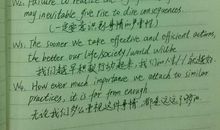 W2. Failure to realize the
may inevitable give rise to dire consequences.
(一定要意识到事情的严重性)
W3. The sooner we take effective and efficient actions,
the better our life/society/world will be
我们越早采取行动起来,我们的
W4. How ever much importance we attach to similar
practices, it is far from enough.
无论我们多么重视这件事情都